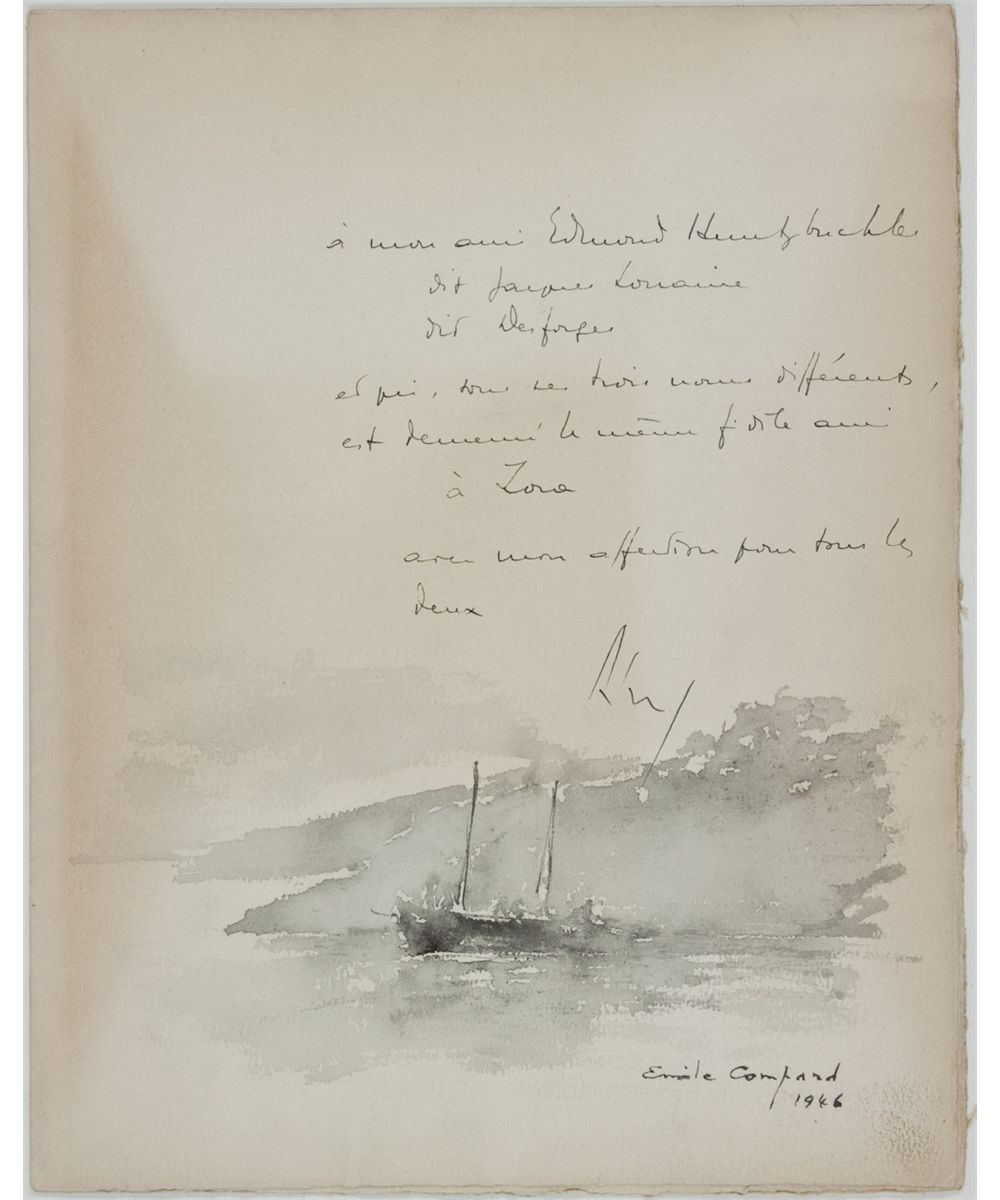 à mon ami Edmond Huntzbuchler
dit Jacques Lorraine
dit Desforges
et qui, sous ses trois noms différents,
est demeuré le même fidèle ami
à Zora
avec mon affection pour tous les
deux
Emile Compard
1946